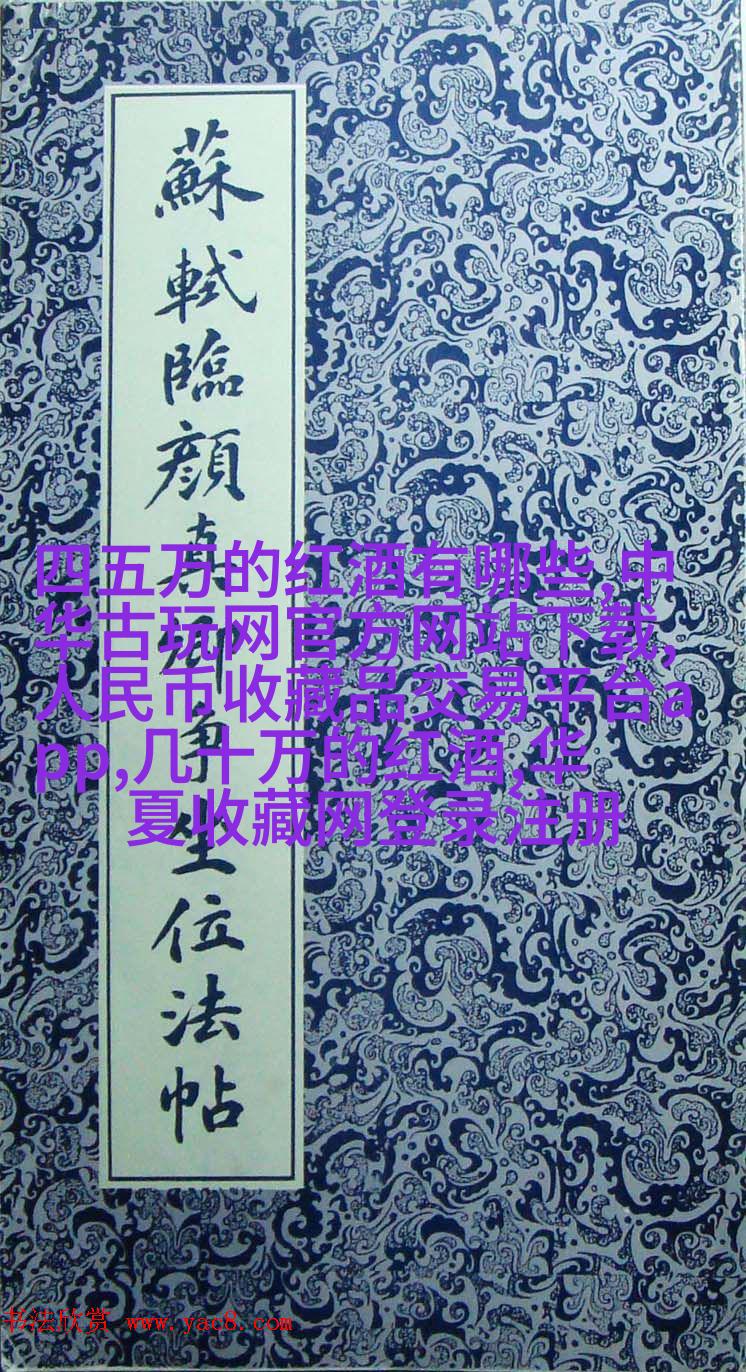 蘇軾臨顔真卿争坐位法帖
四五万的红酒有哪些,中
华古玩网官方网站下载,
人民币收藏品交易平台a
pp,几十万的红酒,华
夏收藏网登录注册
书法欣赏 www.yac8.com